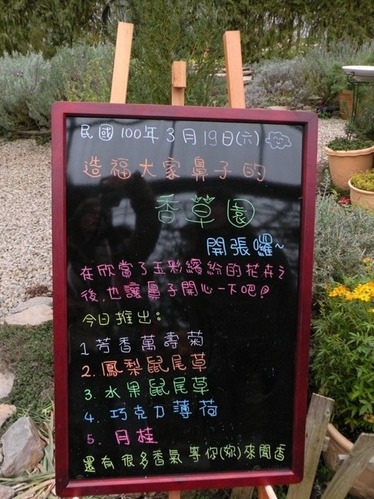 民國100年3月19日(六)
造福大家鼻子的
香草園
開張囉~
在欣賞了五彩繽紛的花卉之
後,也讓鼻子開心一下吧!
今日推出:
1.芳香萬壽菊
2.鳳梨鼠尾草
3.水果鼠尾草
4.巧克力薄荷
5.月桂
還有很多香氣等你(妳)來聞香